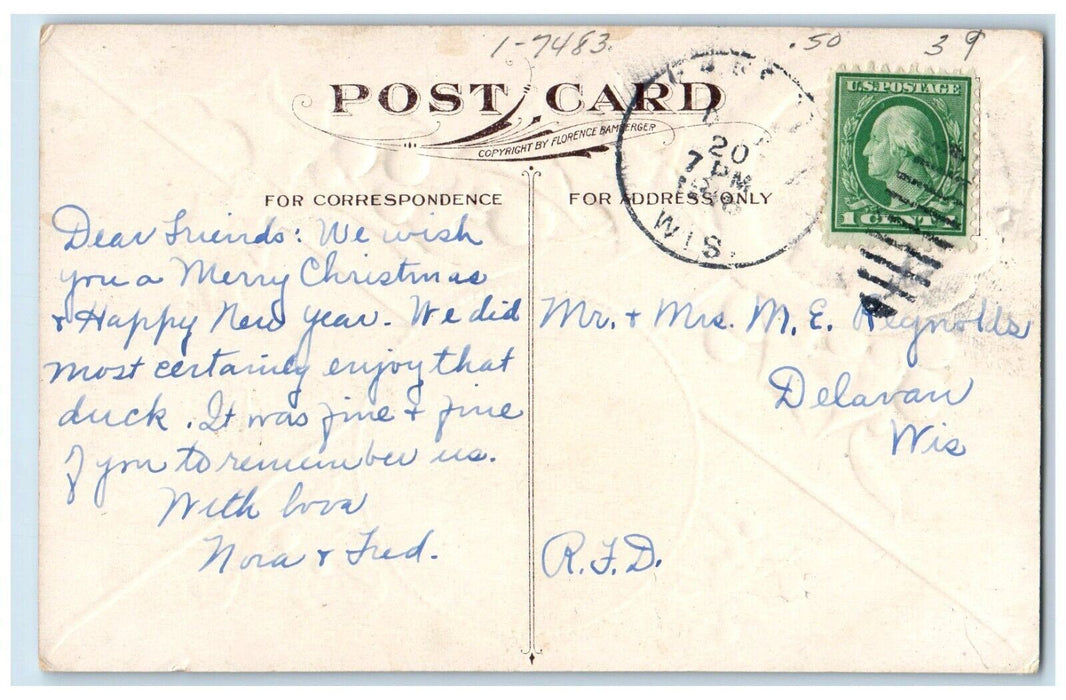 1-7483. .50 39
POST CARD
COPYRIGHT BY FLORENCE BAMBERGER
U.S. POSTAGE
1 CENT 1
20
7 PM
WIS.
FOR CORRESPONDENCE
FOR ADDRESS ONLY
Dear Friends: We wish
you a Merry Christmas
& Happy New Year. We did
most certainly enjoy that
duck. It was fine & fine
of you to remember us.
With love
Nora & Fred.
Mr. & Mrs. M. E. Reynolds
Delavan
Wis
R.F.D.